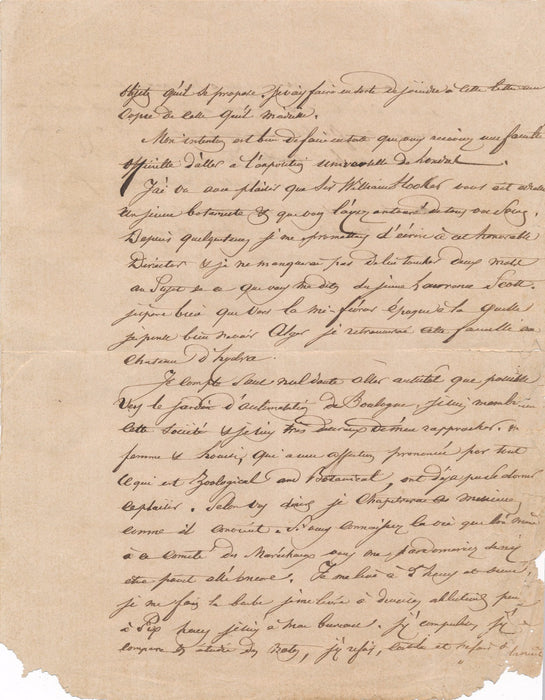 objets qu'il se propose. Je vais faire en sorte de joindre à cette lettre une
copie de celle qu'il m'adresse.
Mon intention est bien de faire en sorte que vous receviez une
officielle d'aller à l'exposition universelle de Londres.
J'ai vu avec plaisir que Sir William Hooker vous est
un jeune botaniste & que vous l'ayez entouré de tous vos soins.
Depuis quelque temps je me promettais d'écrire à cet honorable
Director & je ne manquerai pas de lui toucher deux mots
au sujet de ce que vous me dites du jeune Lawrence Scott.
j'espère bien que vers la mi-février époque à laquelle
je pense bien revoir Alger je retrouverai cette famille au
chateau d'hydra.
Je compte sans nul doute aller aussitôt que possible
vers le jardin d'acclimatation de Boulogne. je suis membre
cette société & je suis très heureux de m'en rapprocher.
femme & Louise, qui a une affection prononcée par tout
ce qui est Zoological and Botanical, ont déjà pu se donner
ce plaisir. Selon vos dires je
comme il convient. Si vous connaissiez la vie que l'on mène
à ce Comité des Maréchaux vous me pardonneriez
être peut être
. Je me lève à 5 heures et
je me fais la barbe je me livre à
à six heures je suis à mon bureau. J'y compulse, j'y
compare & étudie des
, j'y refais,